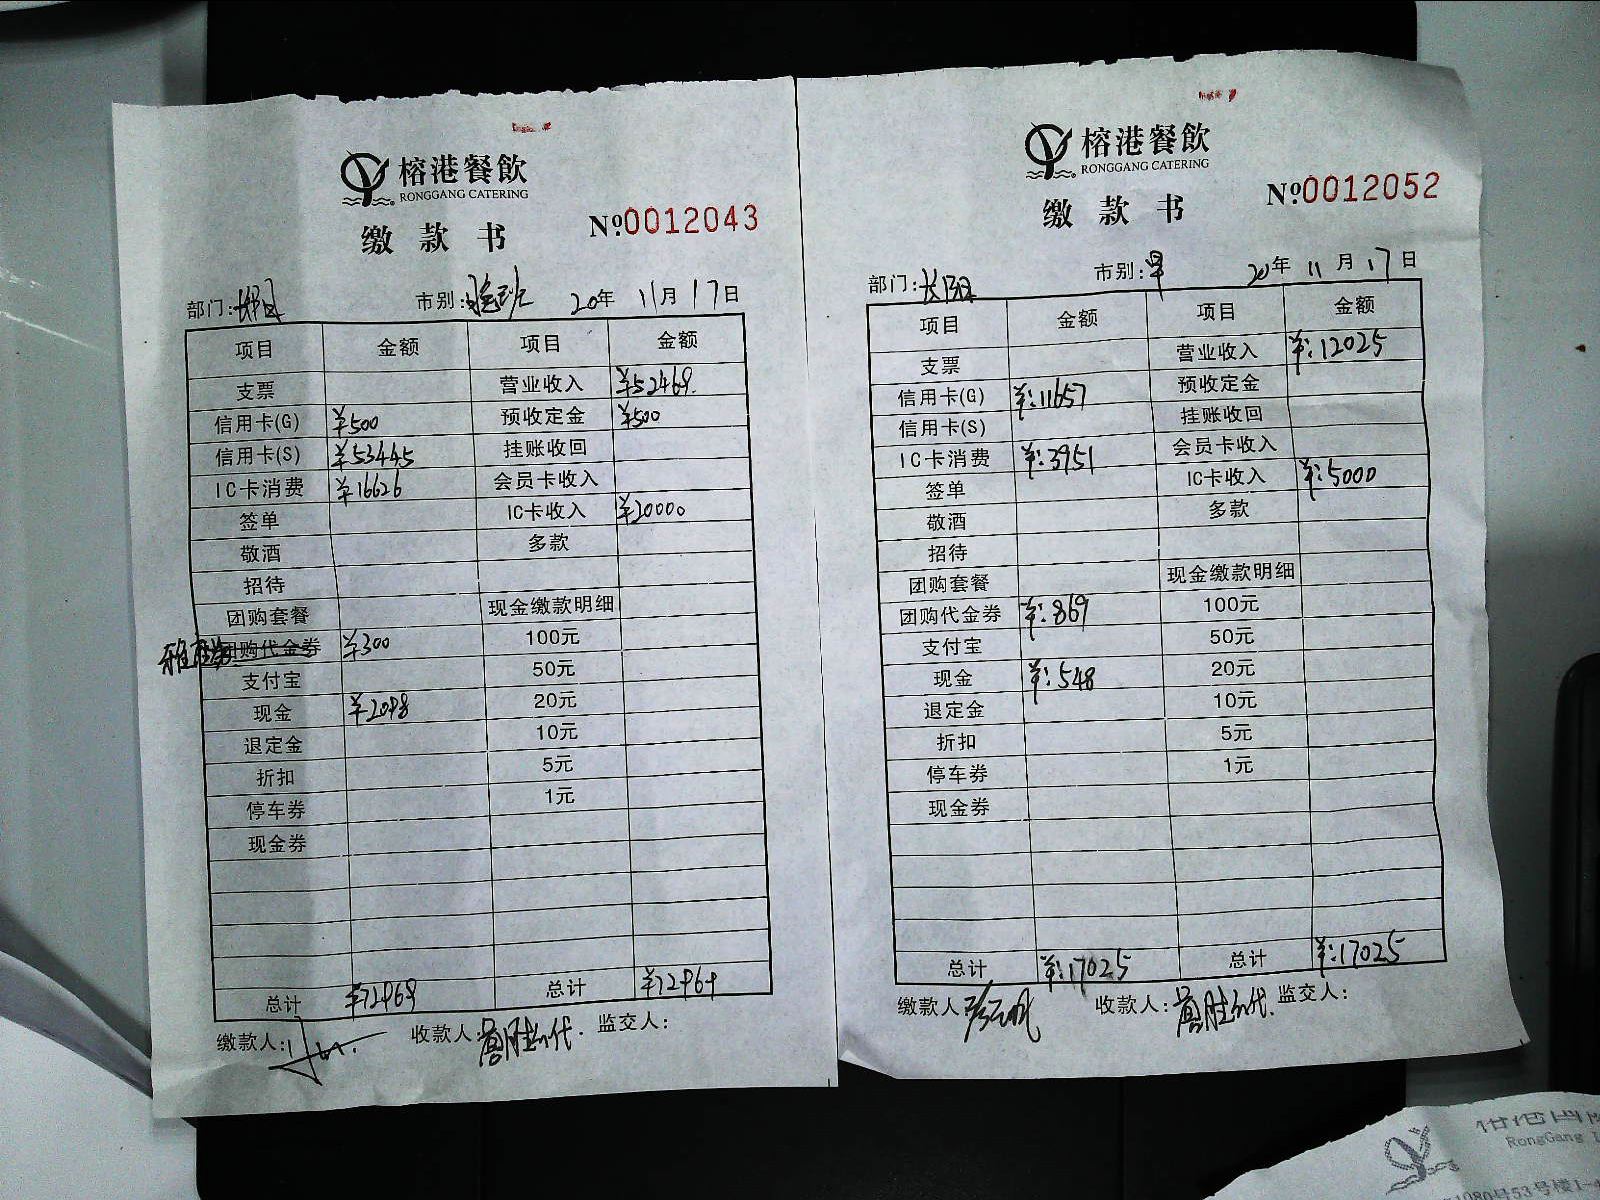 榕港餐飲
RONGGANG CATERING
缴款书
№0012043
部门: 市别: 班 20年 11月 17日
项目 金额 项目 金额
支票 营业收入 ¥52469.
信用卡(G) ¥500 预收定金 ¥500
信用卡(S) ¥53445 挂账收回
IC卡消费 ¥16626 会员卡收入
签单 IC卡收入 ¥20000
敬酒 多款
招待
团购套餐 现金缴款明细
团购代金券 ¥300 100元
支付宝 50元
现金 ¥2098 20元
退定金 10元
折扣 5元
停车券 1元
现金券
总计 ¥72969 总计 ¥72969
缴款人: 收款人: 代. 监交人:
榕港餐飲
RONGGANG CATERING
缴款书
№0012052
部门: 市别: 早 20年 11月 17日
项目 金额 项目 金额
支票 营业收入 ¥:12025
信用卡(G) ¥:11657 预收定金
信用卡(S) 挂账收回
IC卡消费 ¥:3951 会员卡收入
签单 IC卡收入 ¥:5000
敬酒 多款
招待
团购套餐 现金缴款明细
团购代金券 ¥:869 100元
支付宝 50元
现金 ¥:548 20元
退定金 10元
折扣 5元
停车券 1元
现金券
总计 ¥:17025 总计 ¥:17025
缴款人: 收款人: 代. 监交人:
RongGang
1080号53号楼1-4